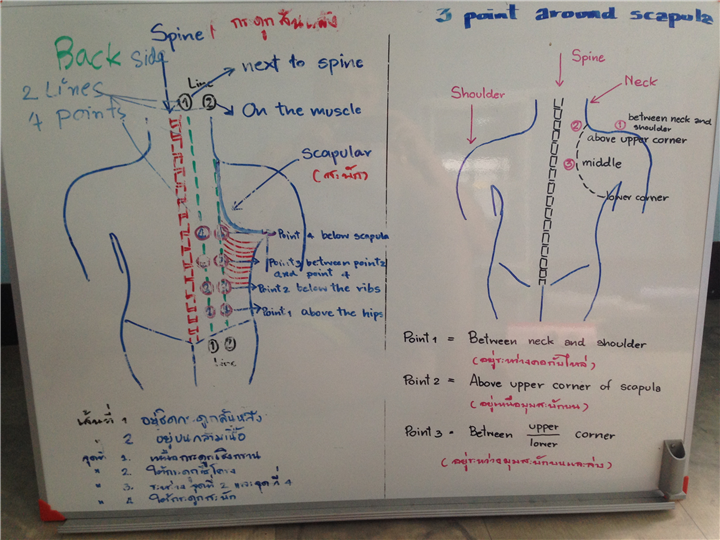 Spine กระดูกสันหลัง
Back side
Line
① ②
next to spine
2 Lines
4 points
On the muscle
Scapular
(สะบัก)
Point 4 below scapula
Point 3 between point 2
and point 4
Point 2 below the ribs
Point 1 above the hips
① ②
Line
เส้นที่ 1 อยู่ชิดกระดูกสันหลัง
" 2 อยู่บนกล้ามเนื้อ
จุดที่ 1. เหนือกระดูกเชิงกราน
" 2. ใต้กระดูกซี่โครง
" 3. ระหว่างจุดที่ 2 และจุดที่ 4
" 4. ใต้กระดูกสะบัก
3 point around scapula
Spine
Neck
Shoulder
① between neck and
shoulder
② above upper corner
③ middle
lower corner
Point 1 = Between neck and shoulder
(อยู่ระหว่างคอกับไหล่)
Point 2 = Above upper corner of scapula
(อยู่เหนือมุมสะบักบน)
Point 3 = Between upper/lower corner
(อยู่ระหว่างมุมสะบักบนและล่าง)